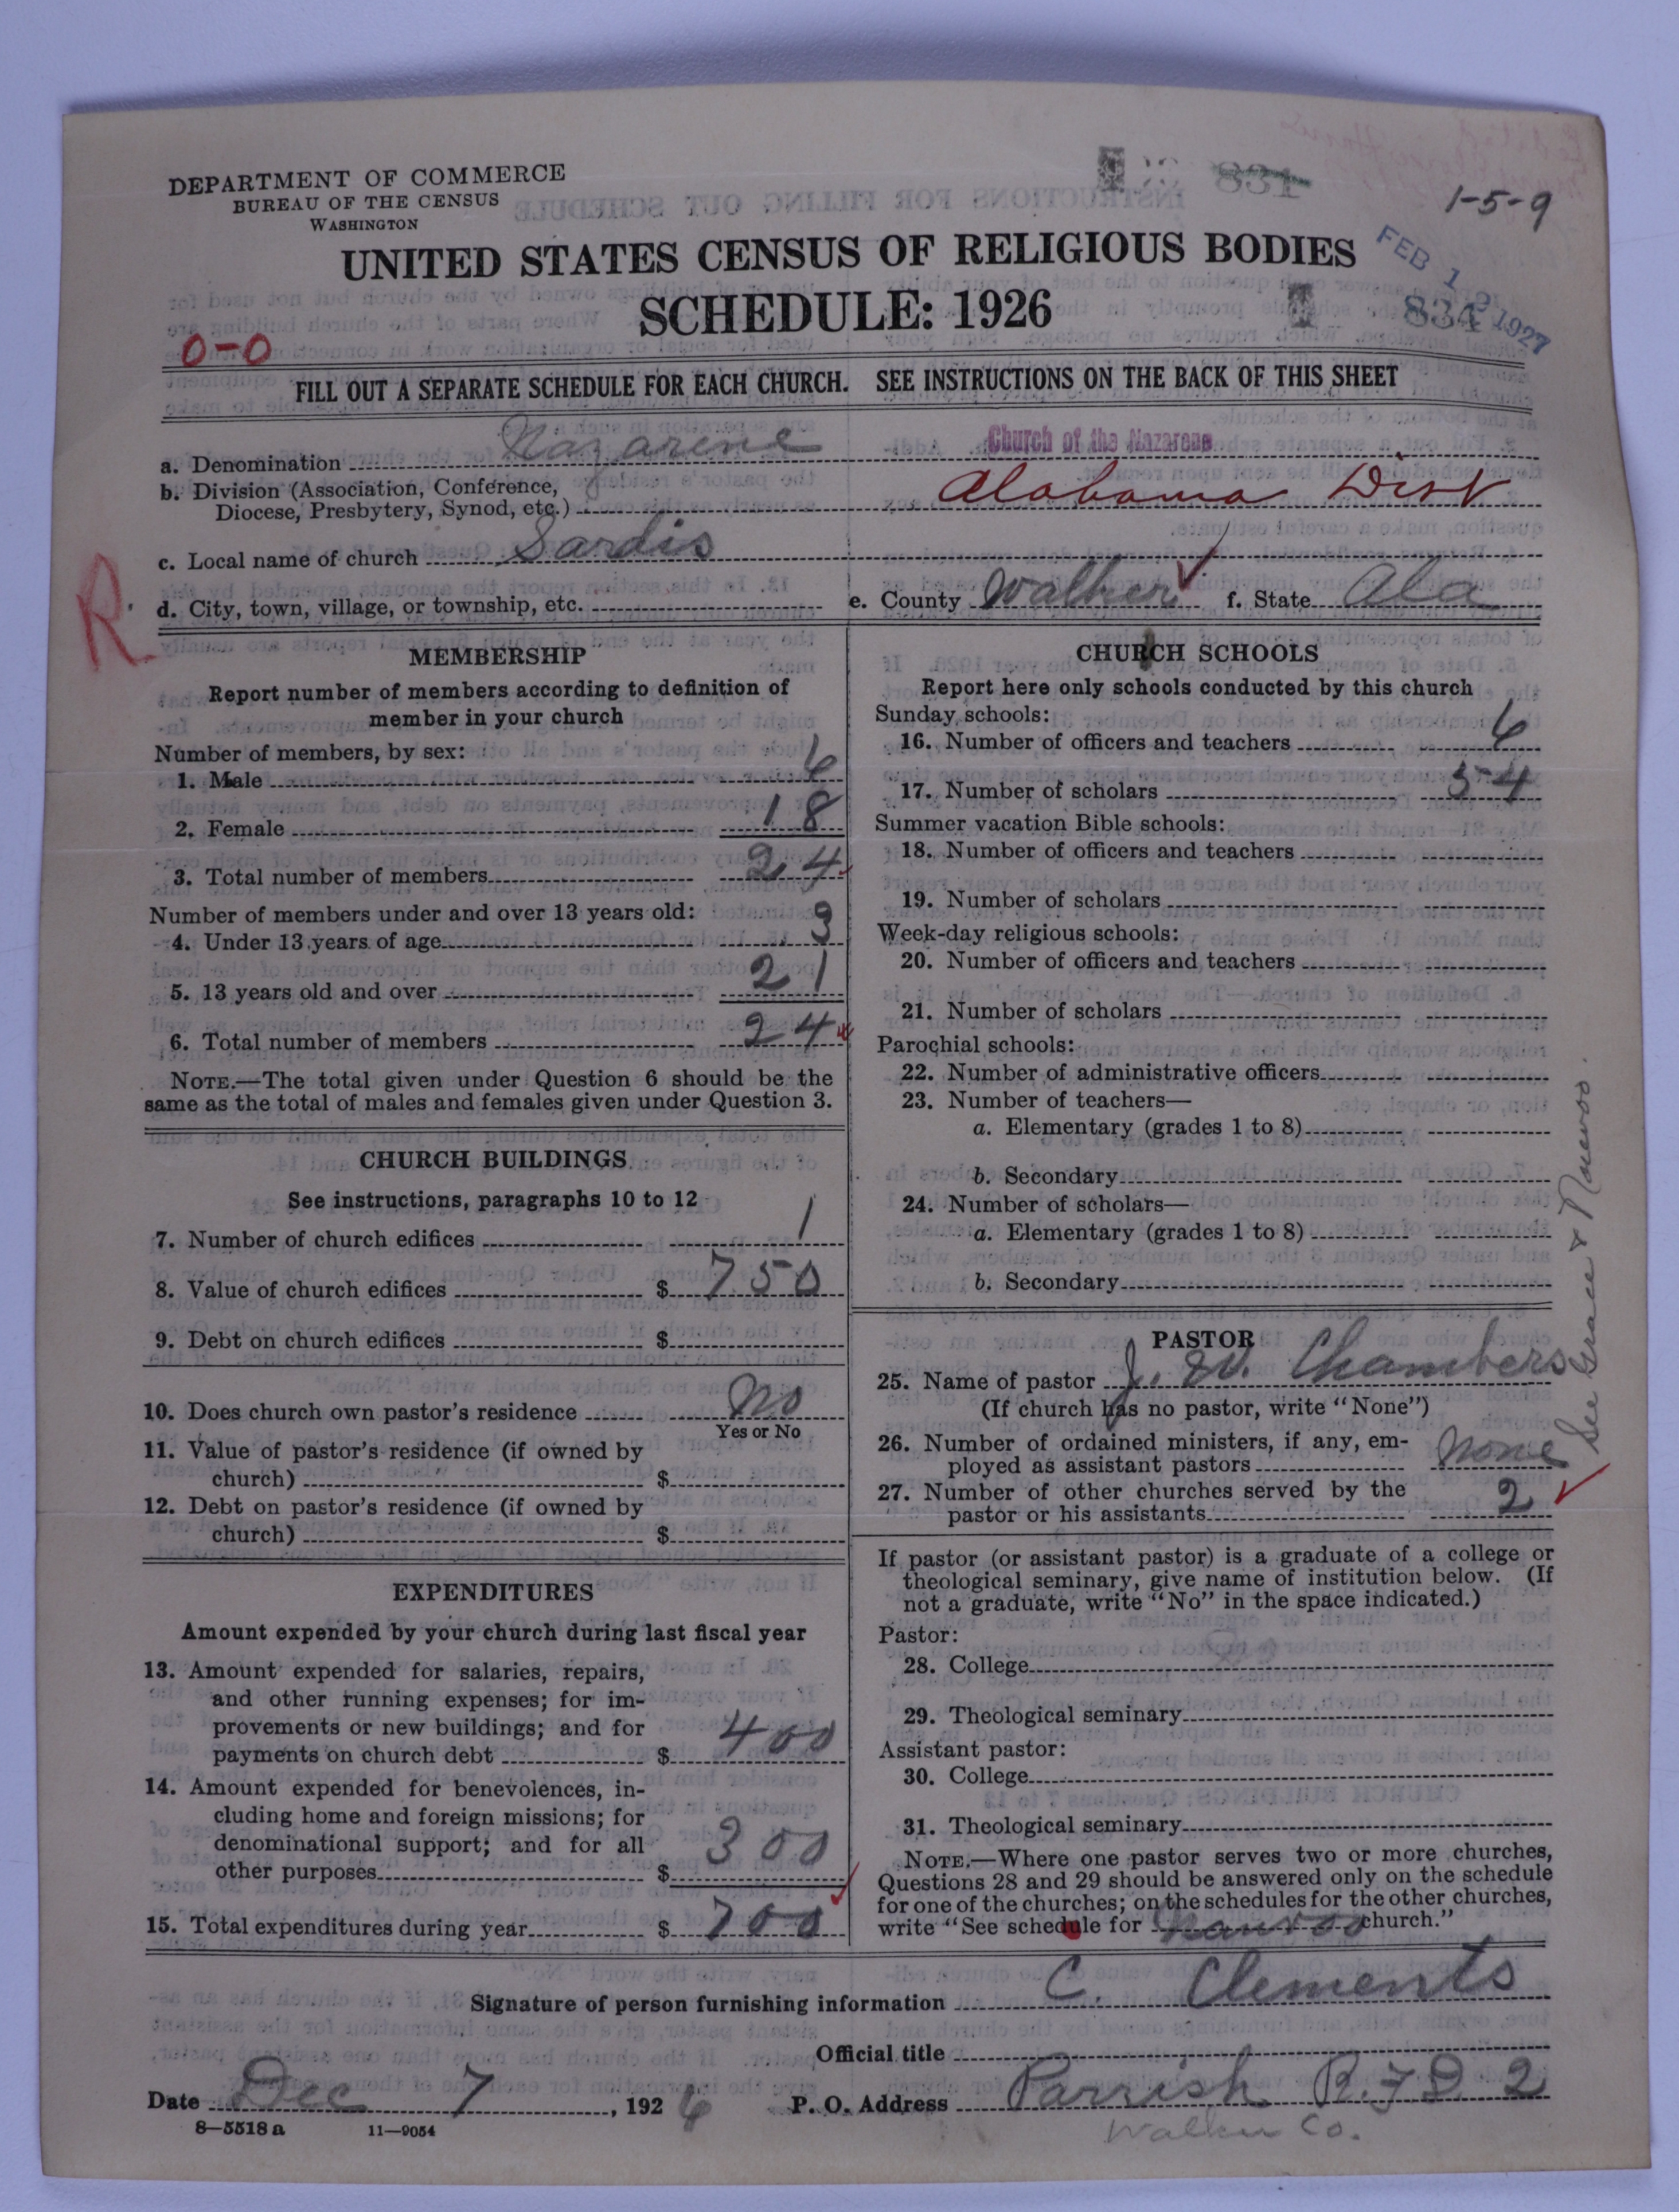 DEPARTMENT OF COMMERCE
BUREAU OF THE CENSUS
WASHINGTON
834
1-5-9
UNITED STATES CENSUS OF RELIGIOUS BODIES
SCHEDULE: 1926
FEB 1 1927
834
0-0
FILL OUT A SEPARATE SCHEDULE FOR EACH CHURCH. SEE INSTRUCTIONS ON THE BACK OF THIS SHEET
a. Denomination Nazarene Church of the Nazarene
b. Division (Association, Conference,
Diocese, Presbytery, Synod, etc.) Alabama Dist
c. Local name of church Sardis
R
d. City, town, village, or township, etc. e. County Walker f. State Ala
MEMBERSHIP
Report number of members according to definition of
member in your church
Number of members, by sex:
1. Male 6
2. Female 18
3. Total number of members 24
Number of members under and over 13 years old:
4. Under 13 years of age 3
5. 13 years old and over 21
6. Total number of members 24
NOTE.—The total given under Question 6 should be the
same as the total of males and females given under Question 3.
CHURCH BUILDINGS
See instructions, paragraphs 10 to 12
7. Number of church edifices 1
8. Value of church edifices $ 750
9. Debt on church edifices $
10. Does church own pastor's residence No
Yes or No
11. Value of pastor's residence (if owned by
church) $
12. Debt on pastor's residence (if owned by
church) $
EXPENDITURES
Amount expended by your church during last fiscal year
13. Amount expended for salaries, repairs,
and other running expenses; for im-
provements or new buildings; and for
payments on church debt $ 400
14. Amount expended for benevolences, in-
cluding home and foreign missions; for
denominational support; and for all
other purposes $ 300
15. Total expenditures during year $ 700
CHURCH SCHOOLS
Report here only schools conducted by this church
Sunday schools:
16. Number of officers and teachers 6
17. Number of scholars 54
Summer vacation Bible schools:
18. Number of officers and teachers
19. Number of scholars
Week-day religious schools:
20. Number of officers and teachers
21. Number of scholars
Parochial schools:
22. Number of administrative officers
23. Number of teachers—
a. Elementary (grades 1 to 8)
b. Secondary
24. Number of scholars—
a. Elementary (grades 1 to 8)
b. Secondary
PASTOR
25. Name of pastor J. W. Chambers
(If church has no pastor, write "None")
26. Number of ordained ministers, if any, em-
ployed as assistant pastors None
27. Number of other churches served by the
pastor or his assistants 2
See Grace & Nauvoo.
If pastor (or assistant pastor) is a graduate of a college or
theological seminary, give name of institution below. (If
not a graduate, write "No" in the space indicated.)
Pastor:
28. College
29. Theological seminary
Assistant pastor:
30. College
31. Theological seminary
NOTE.—Where one pastor serves two or more churches,
Questions 28 and 29 should be answered only on the schedule
for one of the churches; on the schedules for the other churches,
write "See schedule for Nauvoo church."
Signature of person furnishing information C. Clements
Official title
Date Dec 7, 1926 P. O. Address Parrish R.F.D 2
Walker Co.
8—5518 a 11—9054